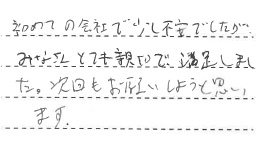 初めての会社で少し不安でしたが、
みなさんとても親切で、満足しまし
た。次回もお願いしようと思い
ます。